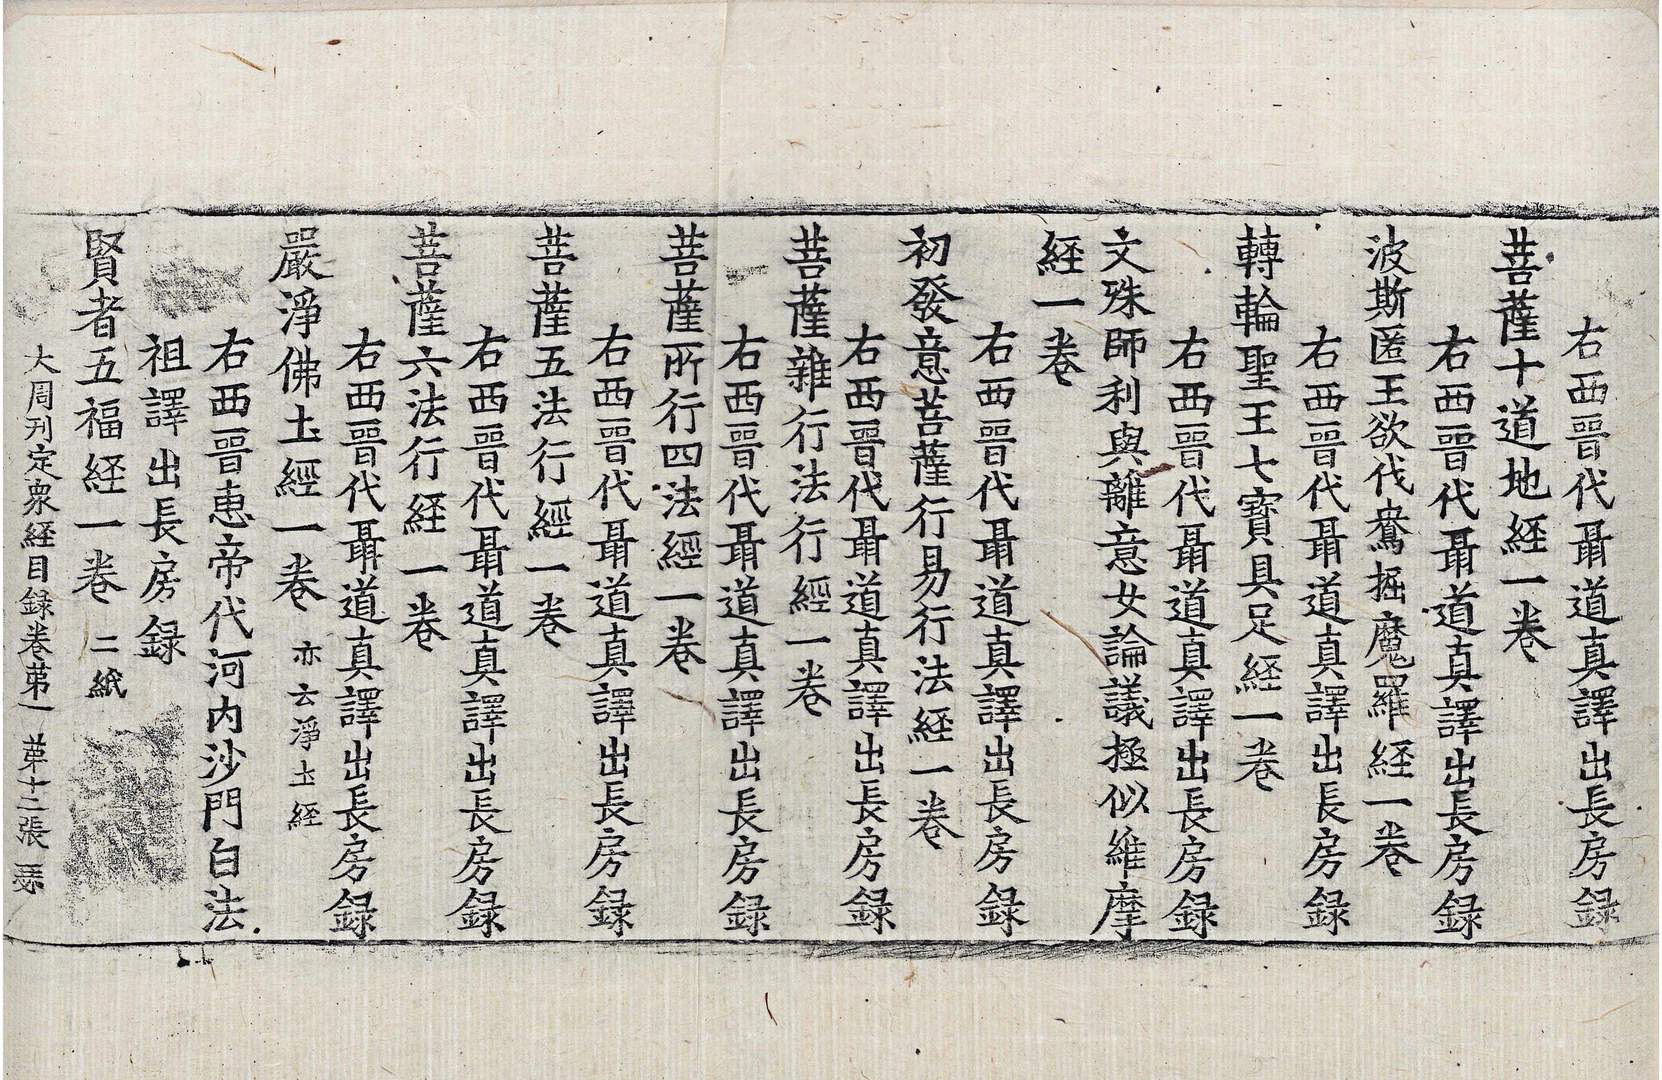 右西晉代聶道真譯出長房録
菩薩十道地経一卷
右西晉代聶道真譯出長房録
波斯匿王欲伐鴦掘魔羅経一卷
右西晉代聶道真譯出長房録
轉輪聖王七寶具足経一卷
右西晉代聶道真譯出長房録
文殊師利與離意女論議極似維摩
経一卷
右西晉代聶道真譯出長房録
初發意菩薩行易行法経一卷
右西晉代聶道真譯出長房録
菩薩雜行法行經一卷
右西晉代聶道真譯出長房録
菩薩所行四法經一卷
右西晉代聶道真譯出長房録
菩薩五法行經一卷
右西晉代聶道真譯出長房録
菩薩六法行経一卷
右西晉代聶道真譯出長房録
嚴淨佛土經一卷 亦云淨土経
右西晉惠帝代河内沙門白法
祖譯出長房録
賢者五福経一卷 二紙
大周刊定衆経目録卷苐一 苐十二張